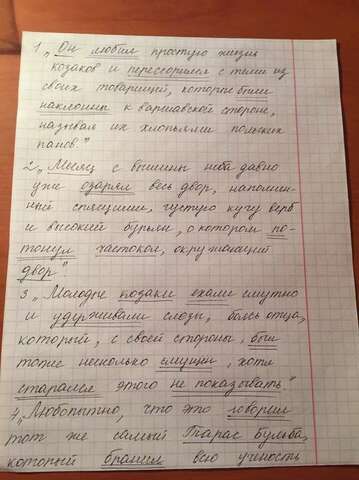 1. „Он любил простую жизнь
козаков и перессорился с теми из
своих товарищей, которые были
наклонны к варшавской стороне,
называя их хлопьями польских
панов."
2 „Месяц с вышины неба давно
уже озарял весь двор, наполнен-
ный спящими, густую кучу верб
и высокий бурьян, о котором по-
тонул частокол, окружавший
двор."
3 „Молодые козаки ехали смутно
и удерживали слёзы, боясь отца,
который, с своей стороны, был
тоже несколько смущен, хотя
старался этого не показывать."
4 „Любопытно, что это говорил
тот же самый Тарас Бульба,
который бранил всю ученость